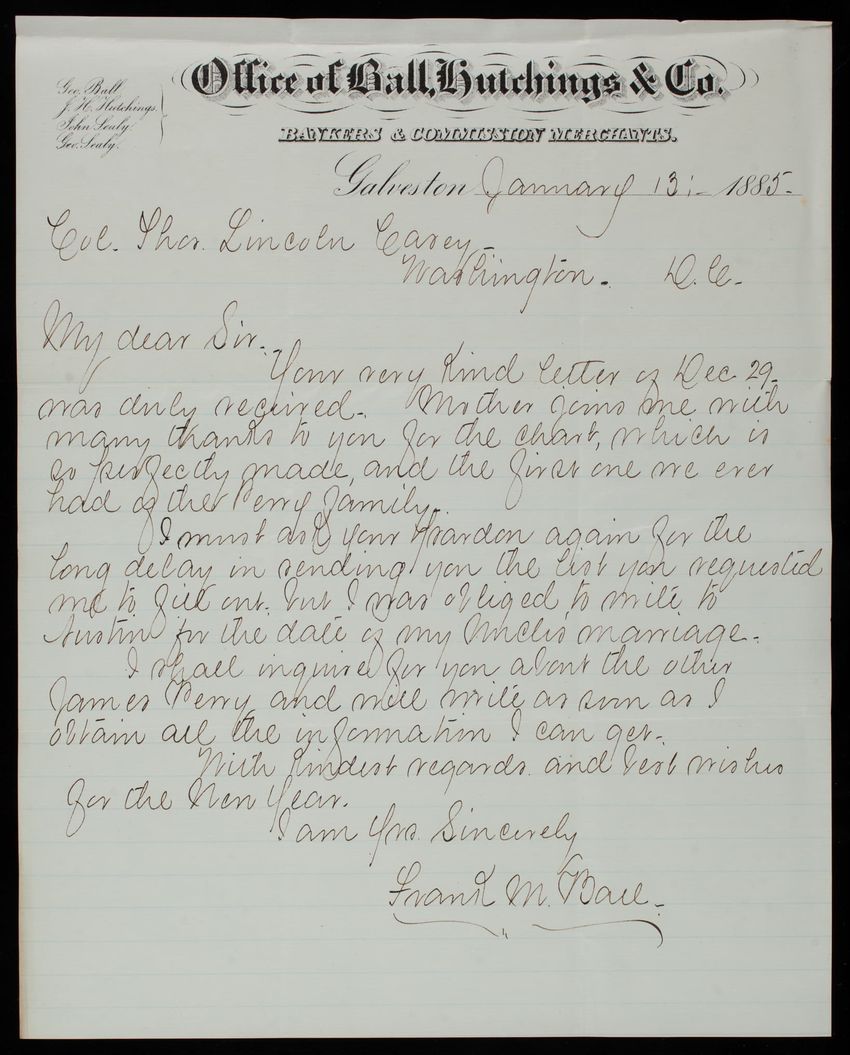 Geo. Ball.
J. H. Hutchings.
John Sealy.
Geo. Sealy.
Office of Ball, Hutchings & Co.
BANKERS & COMMISSION MERCHANTS.
Galveston January 13:- 1885-
Col. Thos. Lincoln Casey-
Washington. D.C.-
My dear Sir.
Your very kind letter of Dec 29-
was duly received. Mother joins me with
many thanks to you for the chart, which is
so perfectly made, and the first one we ever
had of the Perry family.
I must ask your pardon again for the
long delay in sending you the list you requested
me to fill out. but I was obliged to write to
Austin for the date of my Uncles' marriage.
I shall inquire for you about the other
James Perry and will write as soon as I
obtain all the information I can get.
With kindest regards and best wishes
for the New Year.
I am Yrs. Sincerely
Frank M. Ball-